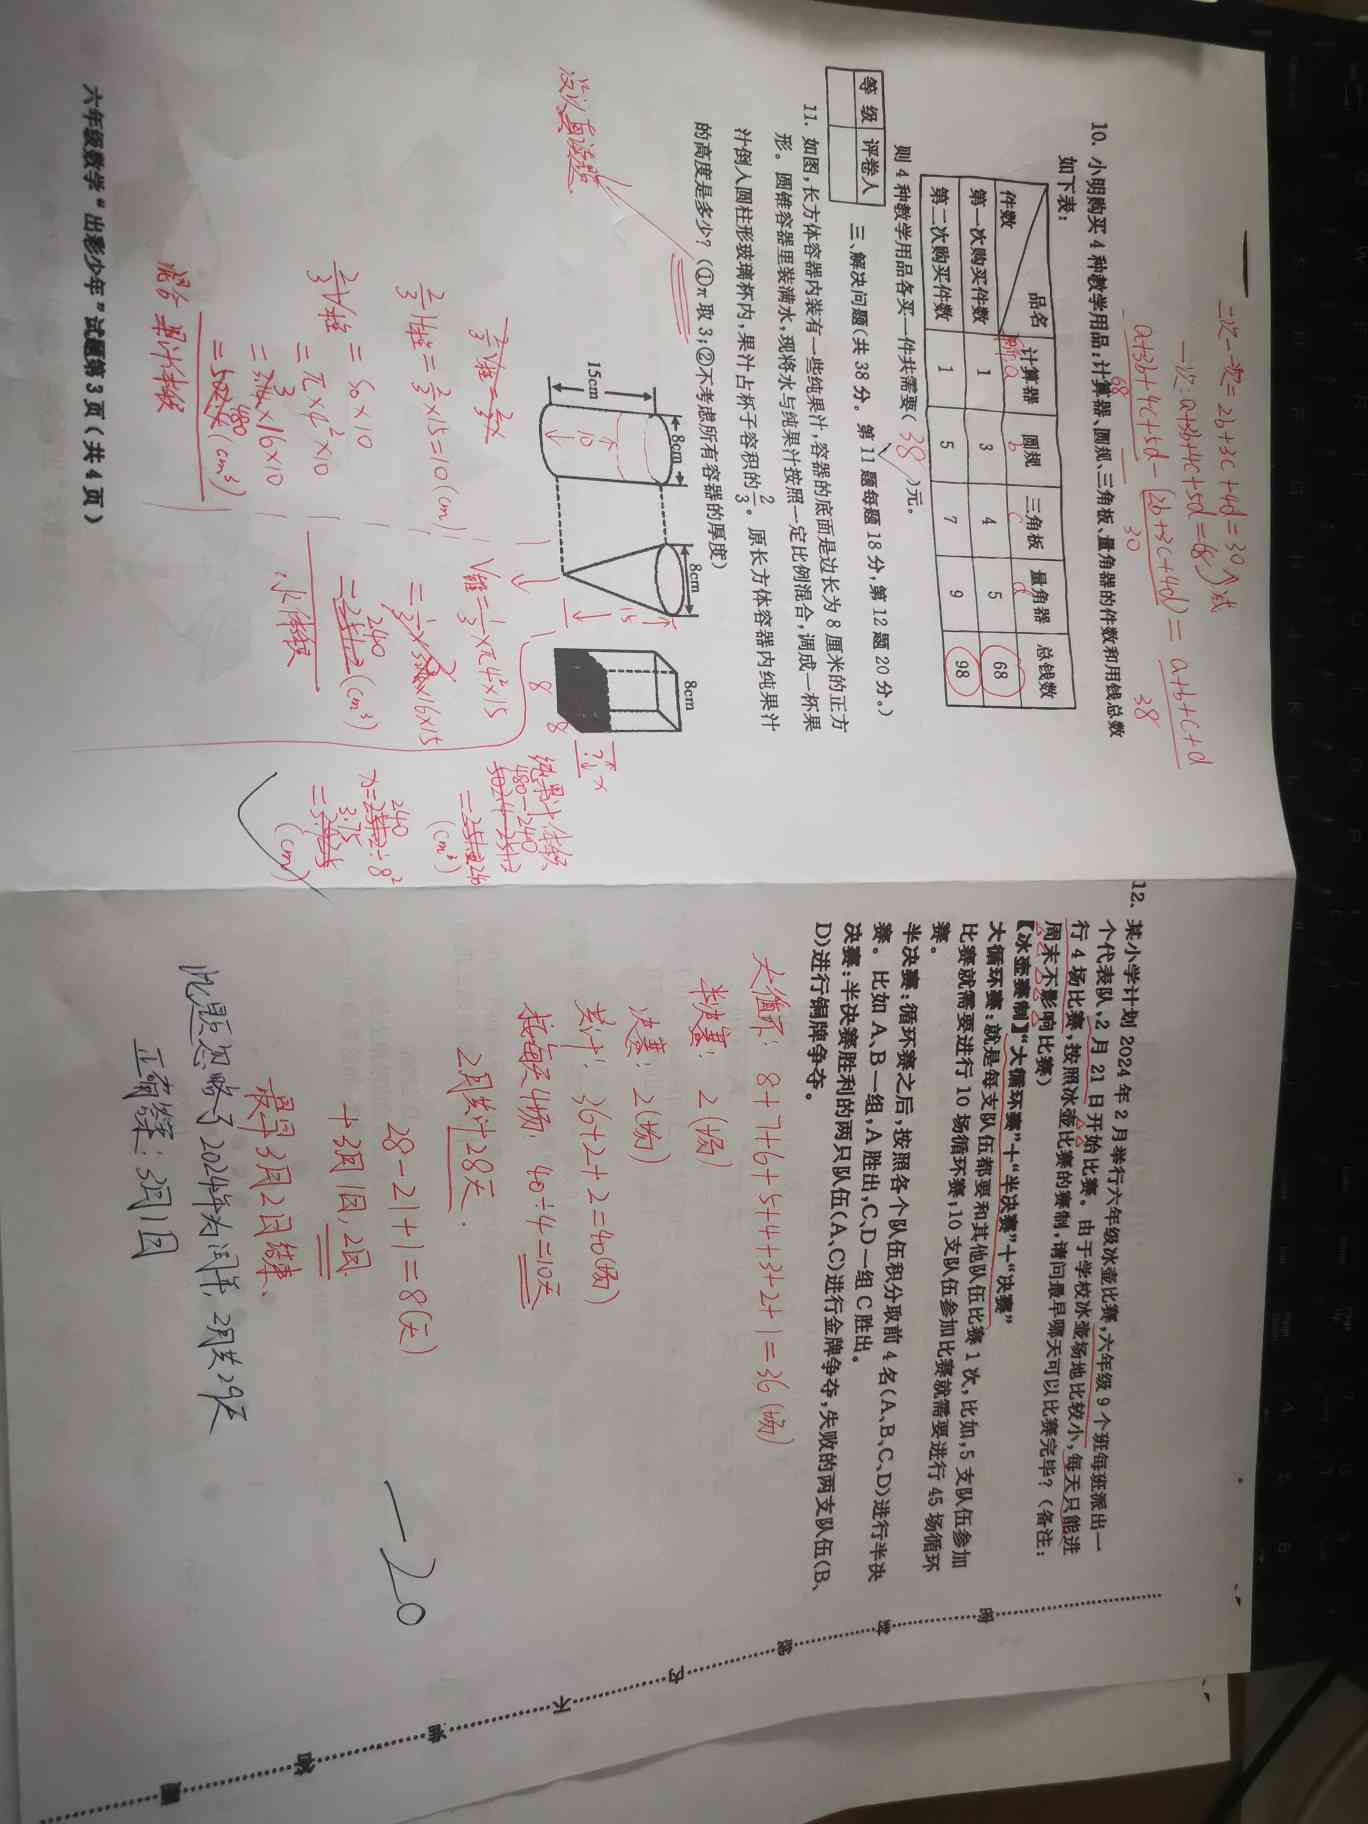 二次-一次=2b+3c+4d=30个式
一次:a+3b+4c+5d=68
a+3b+4c+5d-(2b+3c+4d)=a+b+c+d
68 - 30 38
10. 小明购买 4 种教学用品:计算器、圆规、三角板、量角器的件数和用钱总数
如下表:
品名 计算器 圆规 三角板 量角器 总钱数
件数 a b c d
第一次购买件数 1 3 4 5 68
第二次购买件数 1 5 7 9 98
则 4 种教学用品各买一件共需要( 38 )元。
等 级 评卷人
三、解决问题(共 38 分。第 11 题每题 18 分,第 12 题 20 分。)
11. 如图,长方体容器内装有一些纯果汁,容器的底面是边长为 8 厘米的正方
形。圆锥容器里装满水,现将水与纯果汁按照一定比例混合,调成一杯果
汁倒人圆柱形玻璃杯内,果汁占杯子容积的2/3。原长方体容器内纯果汁
的高度是多少?(①π 取 3;②不考虑所有容器的厚度)
没认真读题
15cm
8cm
10
8cm
15
8cm
8
8
? x
2/3V柱=2/3x
2/3H柱=2/3×15=10(cm)
2/3V柱=S0×10
=π×4²×10
=3×16×10
=480(cm³)
混合果汁体积
V锥=1/3×π4²×15
=1/3×3×16×15
=240(cm³)
水体积
纯果汁体积
480-240
=240
(cm³)
x=240÷8²
=3.75
(cm)
六年级数学“出彩少年”试题第 3 页(共 4 页)
12. 某小学计划 2024 年 2 月举行六年级冰壶比赛,六年级 9 个班每班派出一
个代表队,2 月 21 日开始比赛。由于学校冰壶场地比较小,每天只能进
行 4 场比赛,按照冰壶比赛的赛制,请问最早哪天可以比赛完毕?(备注:
周末不影响比赛)
【冰壶赛制】“大循环赛”+“半决赛”+“决赛”
大循环赛:就是每支队伍都要和其他队伍比赛 1 次,比如,5 支队伍参加
比赛就需要进行 10 场循环赛,10 支队伍参加比赛就需要进行 45 场循环
赛。
半决赛:循环赛之后,按照各个队伍积分取前 4 名(A、B、C、D)进行半决
赛。比如 A、B 一组,A 胜出,C、D 一组 C 胜出。
决赛:半决赛胜利的两只队伍(A、C)进行金牌争夺,失败的两支队伍(B、
D)进行铜牌争夺。
大循环:8+7+6+5+4+3+2+1=36(场)
半决赛:2(场)
决赛:2(场)
共计:36+2+2=40(场)
按每天4场:40÷4=10天
2月共计28天.
28-21+1=8(天)
+3月1日,2日
最早3月2日结束、
此题忽略了2024年为闰年,2月共29天
正确答案:3月1日
-20
密
内
不
准
答
题